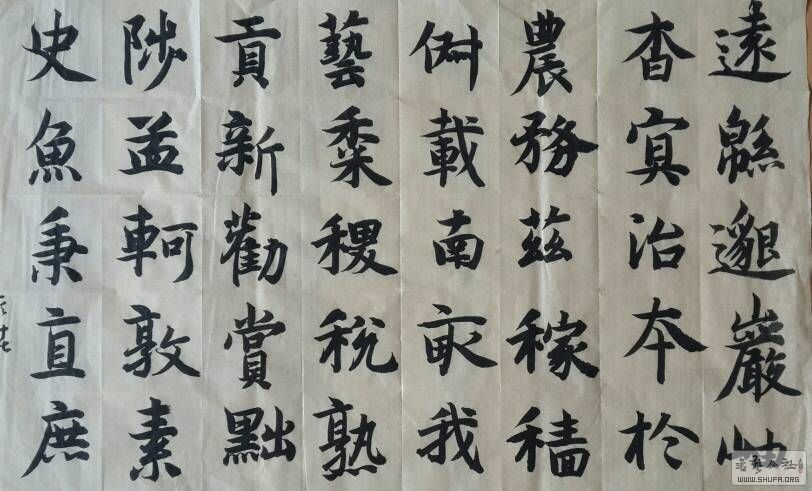 遠緜邈巖岫
杳冥治本於
農務茲稼穡
俶載南畝我
藝黍稷稅熟
貢新勸賞黜
陟孟軻敦素
史魚秉直庶
WWW.SHUFA.ORG